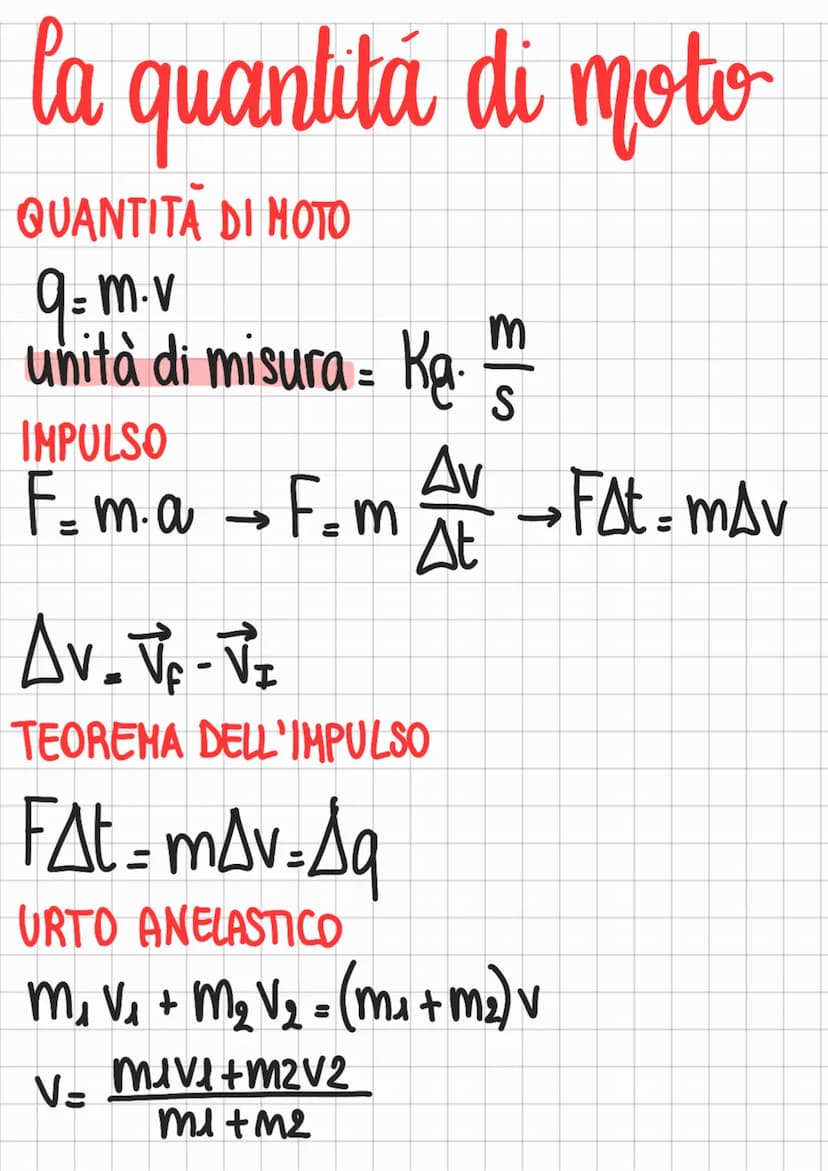 la quantitá di moto
QUANTITÃ DI MOTO
q = m · v
unità di misura = Kg · m/s
IMPULSO
F = m · a → F = m Δv/Δt → FΔt = mΔv
Δv = v⃗F - v⃗I
TEOREMA DELL'IMPULSO
FΔt = mΔv = Δq
URTO ANELASTICO
m₁ v₁ + m₂ v₂ = (m₁ + m₂) v
v = m1v1 + m2v2 / m1 + m2